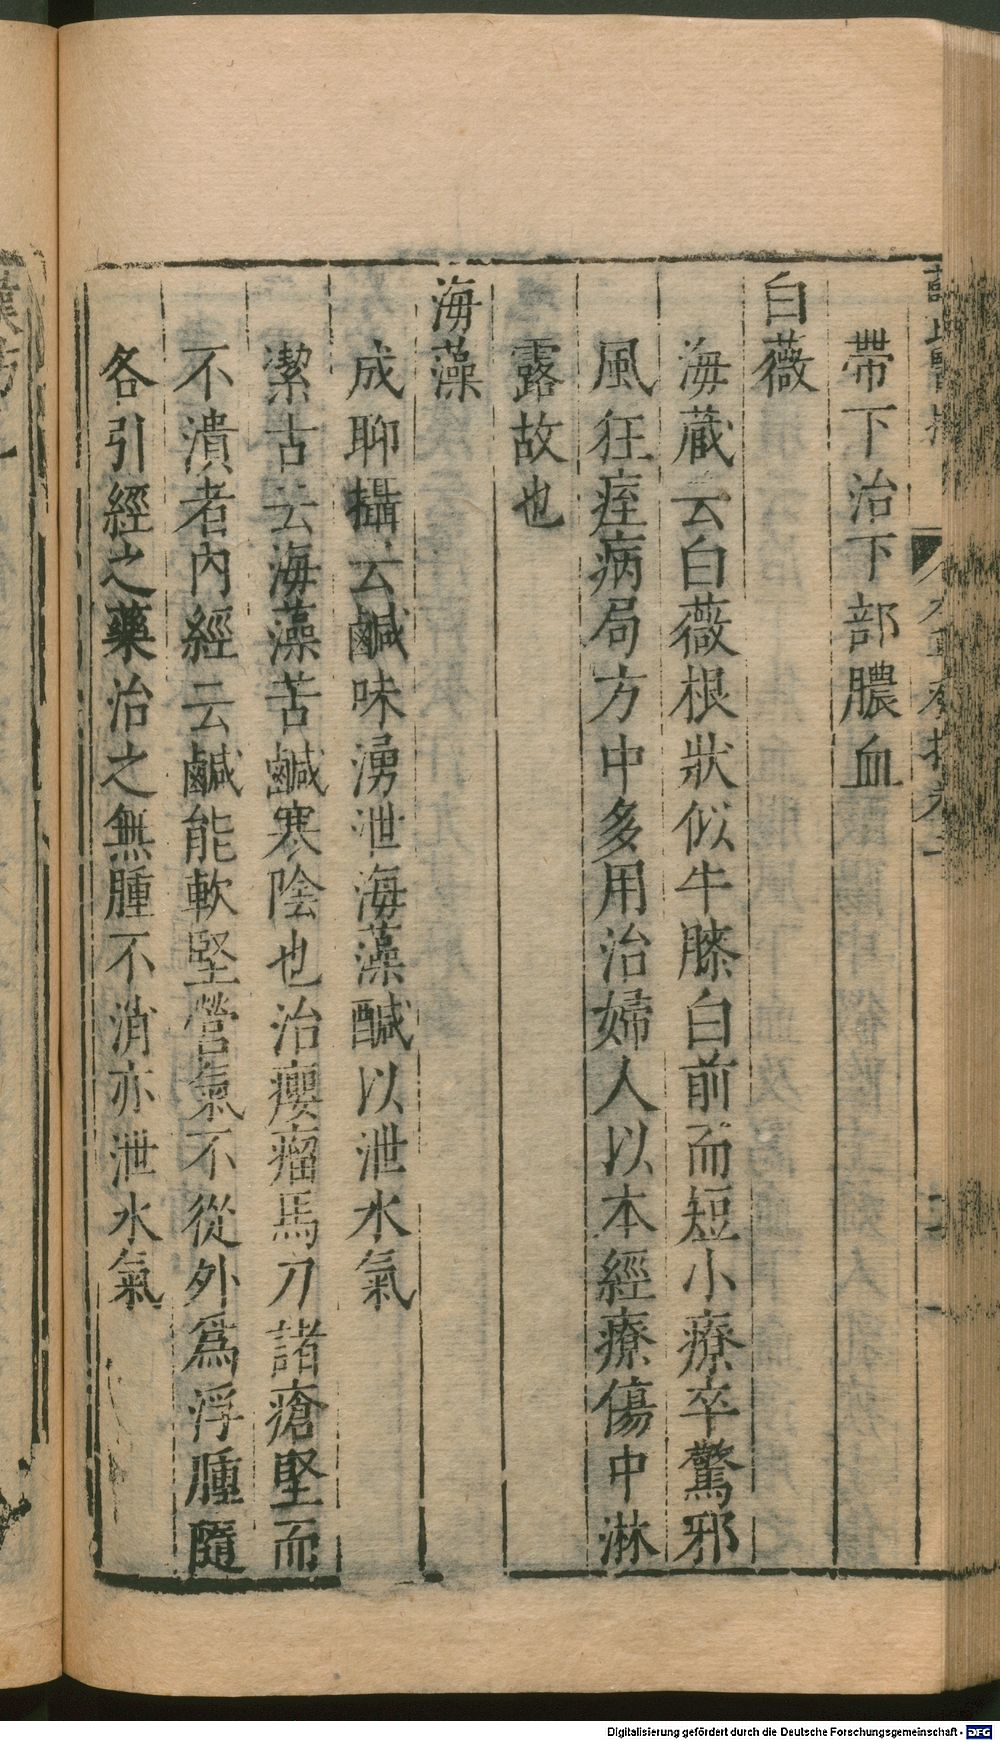 帶下治下部膿血
白薇
海藏云白薇根狀似牛膝白前而短小療卒驚邪
風狂痓病局方中多用治婦人以本經療傷中淋
露故也
海藻
成聊攝云鹹味湧泄海藻鹹以泄水氣
潔古云海藻苦鹹寒陰也治癭瘤馬刀諸瘡堅而
不潰者內經云鹹能軟堅營氣不從外爲浮腫隨
各引經之藥治之無腫不消亦泄水氣
Digitalisierung gefördert durch die Deutsche Forschungsgemeinschaft - DFG